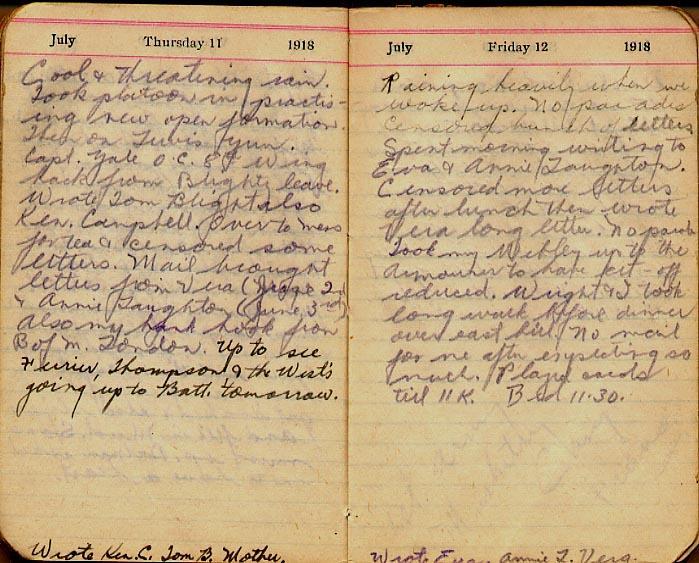 July Thursday 11 1918
Cool & threatening rain.
Took platoon in practis-
ing new open formation.
Then on Lewis gun.
Capt. Yale O.C. & Wing
back from Blighty leave.
Wrote Tom Blight also
Ken. Campbell. Over to mess
for tea & censored some
letters. Mail brought
letters from Vera (June 2
& Annie Laughton (June 3rd)
also my bank book from
B of M. London. Up to see
Thompson & the West's
going up to Batt. tomorrow.
Wrote Ken. C. Tom B. Mother.
July Friday 12 1918
Raining heavily when we
woke up. No parades
Censored bunch of letters
Spent morning writing to
Eva & Annie Laughton.
Censored more letters
after lunch then wrote
Vera long letter. No parade
Took my Webley up to the
armourer to have pull-off
reduced. Wright & I took
long walk before dinner
over east hill. No mail
for me after expecting so
much. Played cards
till 11 K. Bed 11.30.
Wrote Eva. Annie L. Vera.